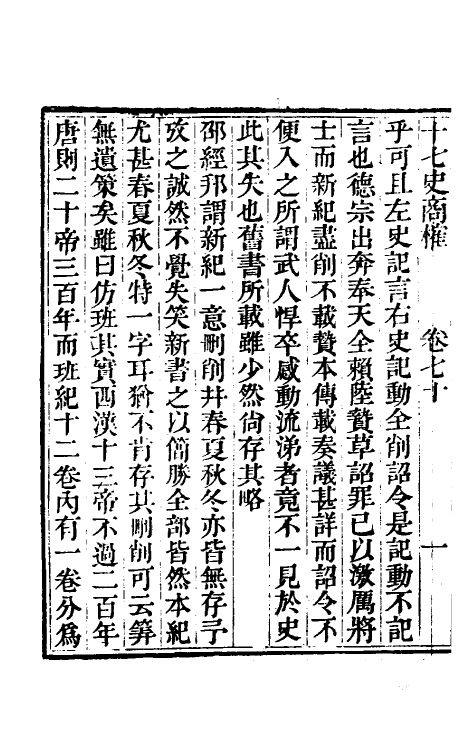 十七史商榷 卷七十 一
乎可且左史記言右史記動全削詔令是記動不記
言也德宗出奔奉天全賴陸贄草詔罪己以激厲將
士而新紀盡削不載贄本傳載奏議甚詳而詔令不
便入之所謂武人悍卒感動流涕者竟不一見於史
此其失也舊書所載雖少然尙存其略
邵經邦謂新紀一意刪削并春夏秋冬亦皆無存予
攷之誠然不覺失笑新書之以簡勝全部皆然本紀
尤甚春夏秋冬特一字耳猶不肯存其刪削可云筭
無遺策矣雖曰仿班其實西漢十三帝不過二百年
唐則二十帝三百年而班紀十二卷內有一卷分爲